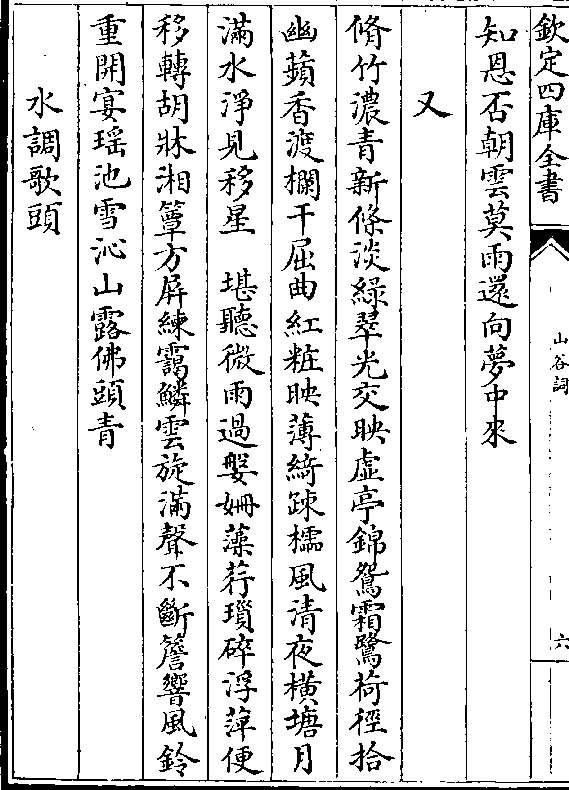 欽定四庫全書
山谷詞
六
知恩否朝雲莫雨還向夢中來
又
脩竹濃青新條淡綠翠光交映虛亭錦鴛霜鷺荷徑拾
幽蘋香渡欄干屈曲紅粧映薄綺疎櫺風清夜橫塘月
滿水淨見移星 堪聽微雨過媻姗藻荇瑣碎浮萍便
移轉胡牀湘簟方屏練靄鱗雲旋滿聲不斷簷響風鈴
重開宴瑤池雪沁山露佛頭青
水調歌頭